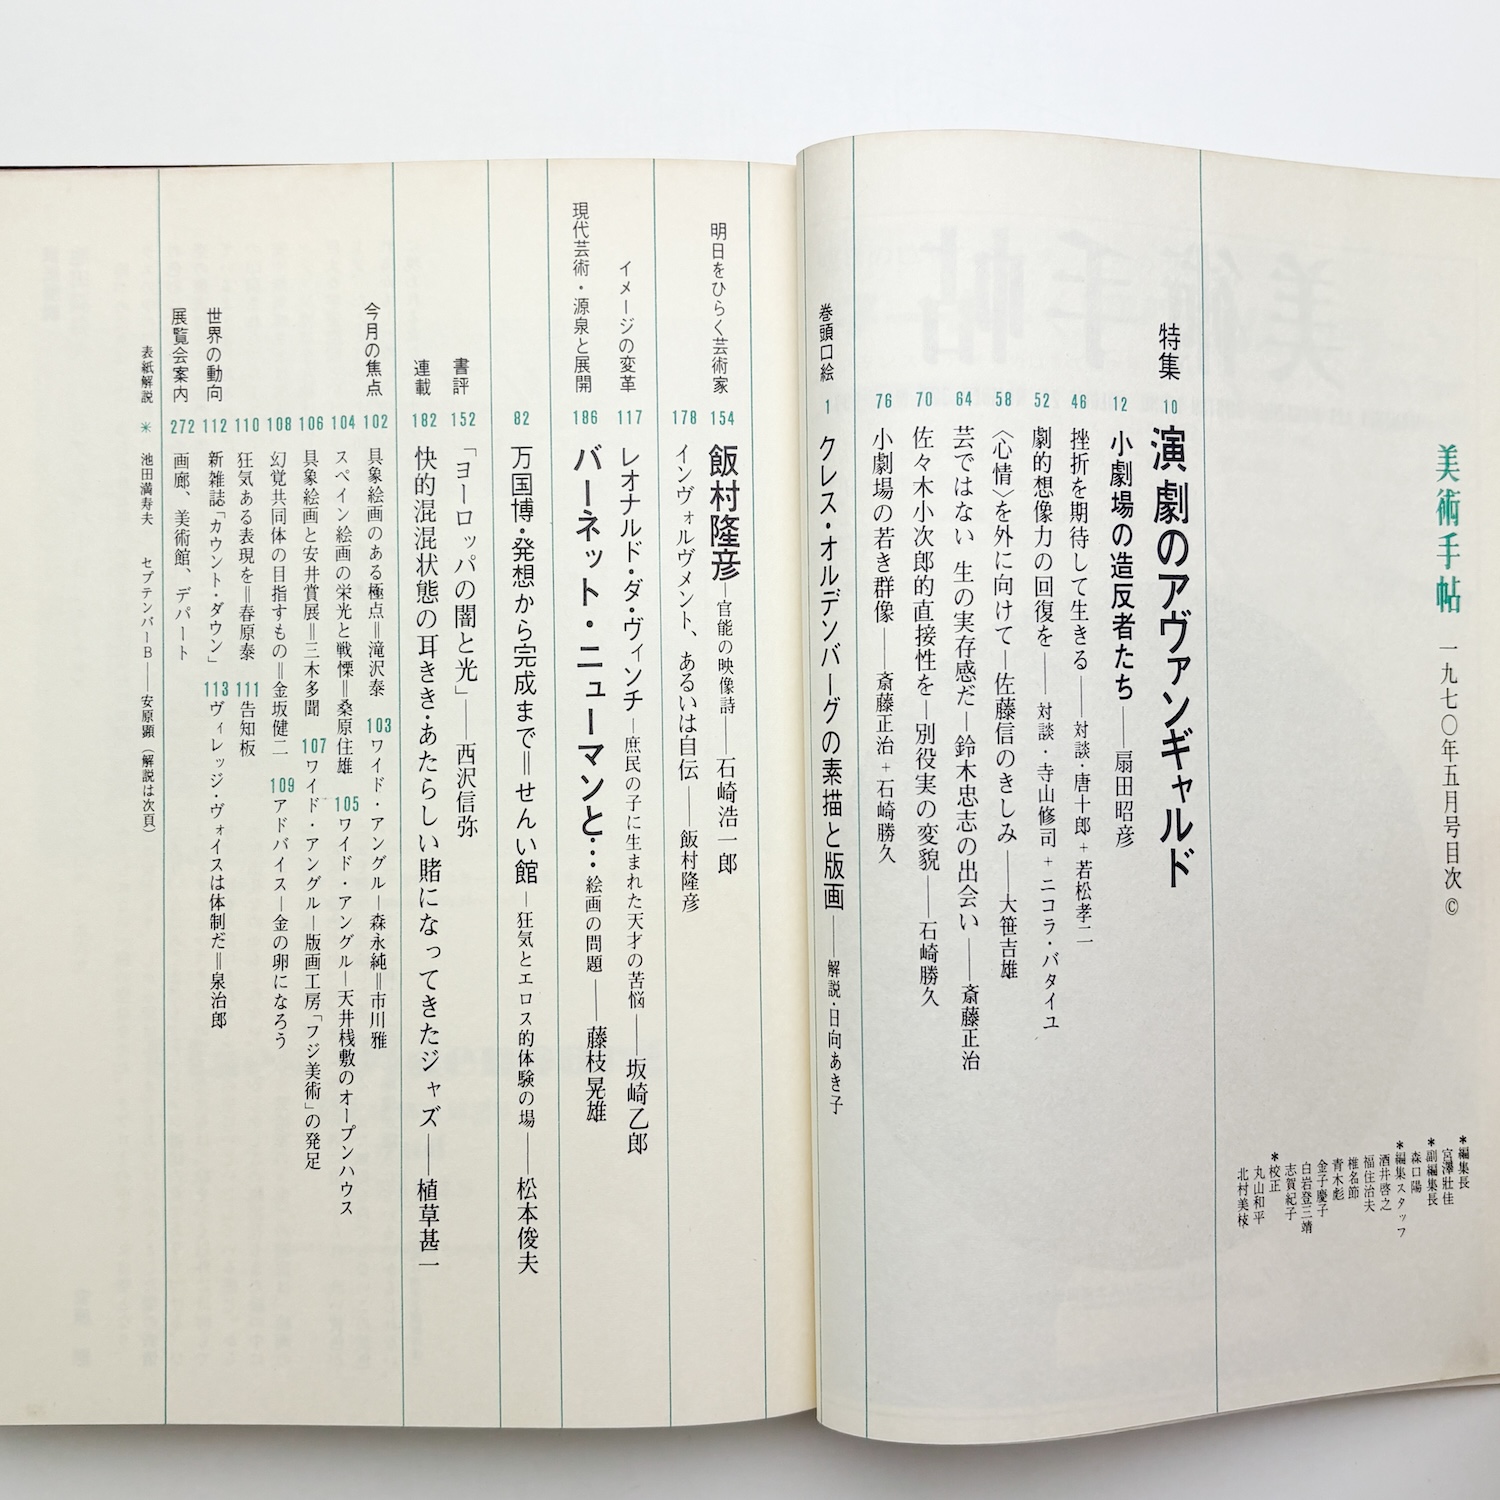 美術手帖 一九七〇年五月号目次 ©
*編集長
宮澤壯佳
*副編集長
森口陽
*編集スタッフ
酒井啓之
福住治夫
椎名節
青木彪
金子慶子
白岩登三靖
志賀紀子
*校正
丸山和平
北村美枝
特集 10 演劇のアヴァンギャルド
12 小劇場の造反者たち——扇田昭彦
46 挫折を期待して生きる——対談・唐十郎+若松孝二
52 劇的想像力の回復を——対談・寺山修司+ニコラ・バタイユ
58 〈心情〉を外に向けて—佐藤信のきしみ——大笹吉雄
64 芸ではない 生の実存感だ—鈴木忠志の出会い——斎藤正治
70 佐々木小次郎的直接性を—別役実の変貌——石崎勝久
76 小劇場の若き群像——斎藤正治+石崎勝久
巻頭口絵 1 クレス・オルデンバーグの素描と版画——解説・日向あき子
明日をひらく芸術家 154 飯村隆彦—官能の映像詩——石崎浩一郎
178 インヴォルヴメント、あるいは自伝——飯村隆彦
イメージの変革 117 レオナルド・ダ・ヴィンチ—庶民の子に生まれた天才の苦悩——坂崎乙郎
現代芸術・源泉と展開 186 バーネット・ニューマンと… 絵画の問題——藤枝晃雄
82 万国博・発想から完成まで=せんい館—狂気とエロス的体験の場——松本俊夫
書評 152 「ヨーロッパの闇と光」——西沢信弥
連載 182 快的混混状態の耳きき・あたらしい賭になってきたジャズ——植草甚一
今月の焦点 102 具象絵画のある極点=滝沢泰 103 ワイド・アングル—森永純=市川雅
104 スペイン絵画の栄光と戦慄=桑原住雄 105 ワイド・アングル—天井桟敷のオープンハウス
106 具象絵画と安井賞展=三木多聞 107 ワイド・アングル—版画工房「フジ美術」の発足
108 幻覚共同体の目指すもの=金坂健二 109 アドバイス—金の卵になろう
110 狂気ある表現を=春原泰 111 告知板
世界の動向 112 新雑誌「カウント・ダウン」 113 ヴィレッジ・ヴォイスは体制だ=泉治郎
展覧会案内 272 画廊、美術館、デパート
表紙解説 * 池田満寿夫 セプテンバーB——安原顕（解説は次頁）